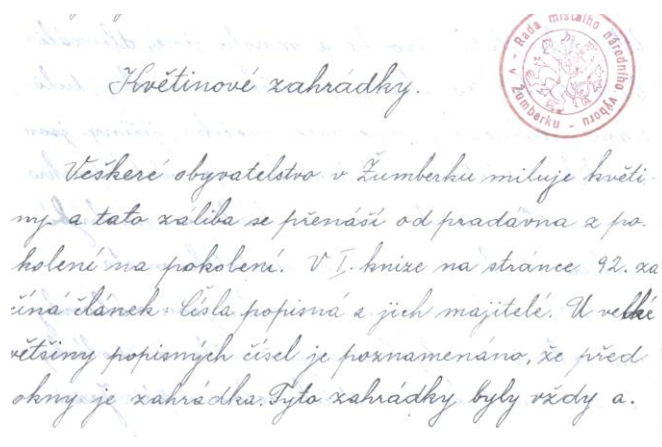 Květinové zahrádky.
- Rada místního národního výboru - v Žumberku
Veškeré obyvatelstvo v Žumberku miluje květi-
ny a tato záliba se přenáší od pradávna z po-
kolení na pokolení. V I. knize na stránce 92. za
číná článek Čísla popisná a jich majitelé. U velké
většiny popisných čísel je poznamenáno, že před
okny je zahrádka. Tyto zahrádky byly vždy a.